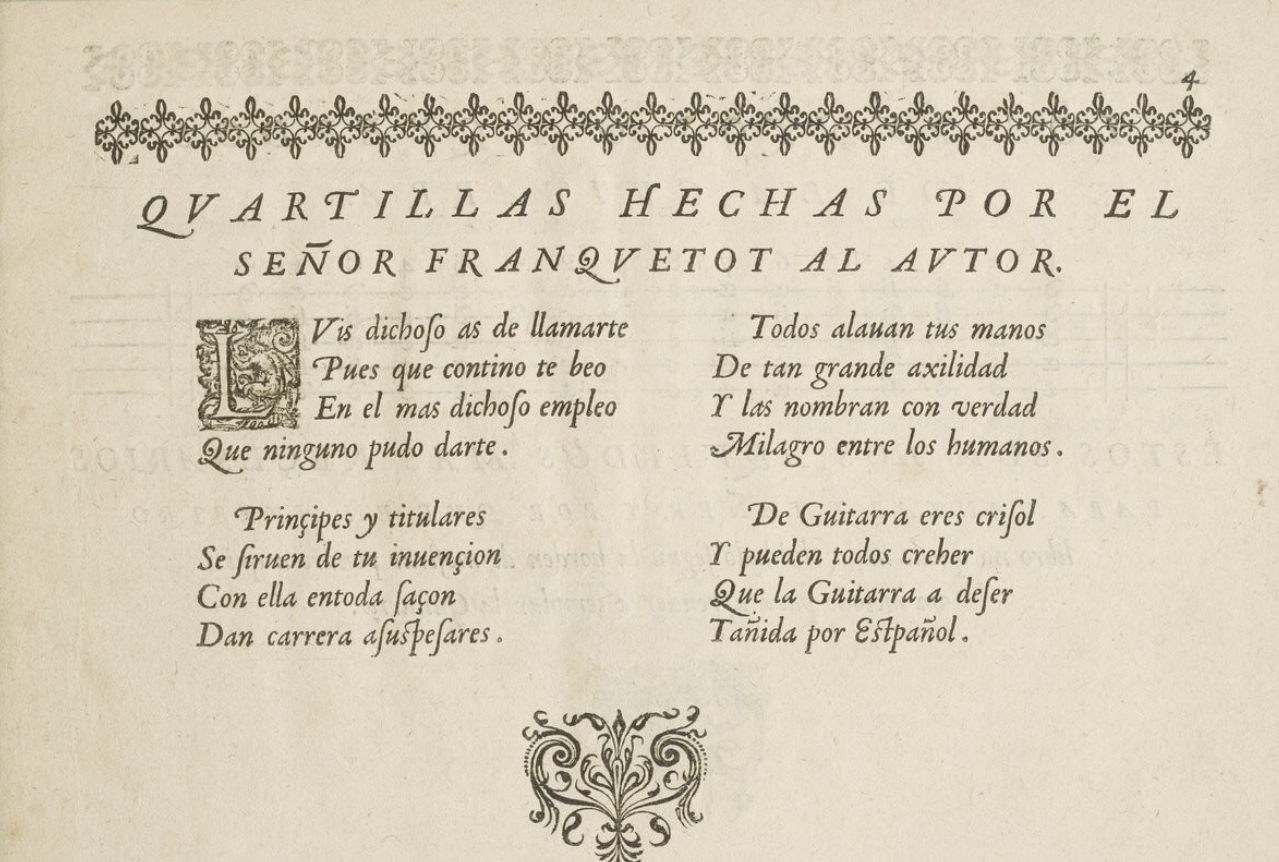 4
QVARTILLAS HECHAS POR EL
SEÑOR FRANQVETOT AL AVTOR.
LVis dichoſo as de llamarte
Pues que contino te beo
En el mas dichoſo empleo
Que ninguno pudo darte.
Prinçipes y titulares
Se ſiruen de tu inuençion
Con ella entoda ſaçon
Dan carrera aſuſpeſares.
Todos alauan tus manos
De tan grande axilidad
Y las nombran con verdad
Milagro entre los humanos.
De Guitarra eres criſol
Y pueden todos creher
Que la Guitarra a deſer
Tañida por Eſtpañol.